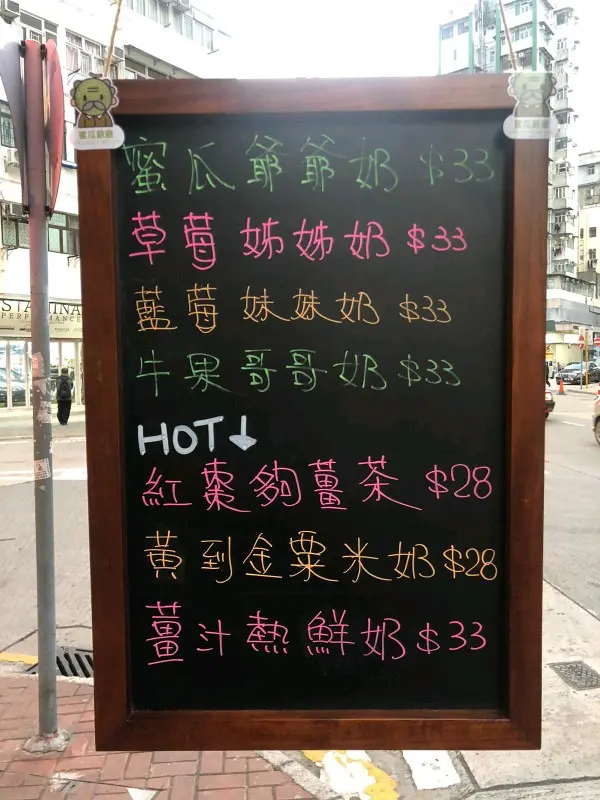 蜜瓜爺爺奶 $33
草莓姊姊奶 $33
藍莓妹妹奶 $33
牛果哥哥奶 $33
HOT↓
紅棗夠薑茶 $28
黃到金粟米奶 $28
薑汁熱鮮奶 $33
蜜瓜爺爺
PERFORMANCE